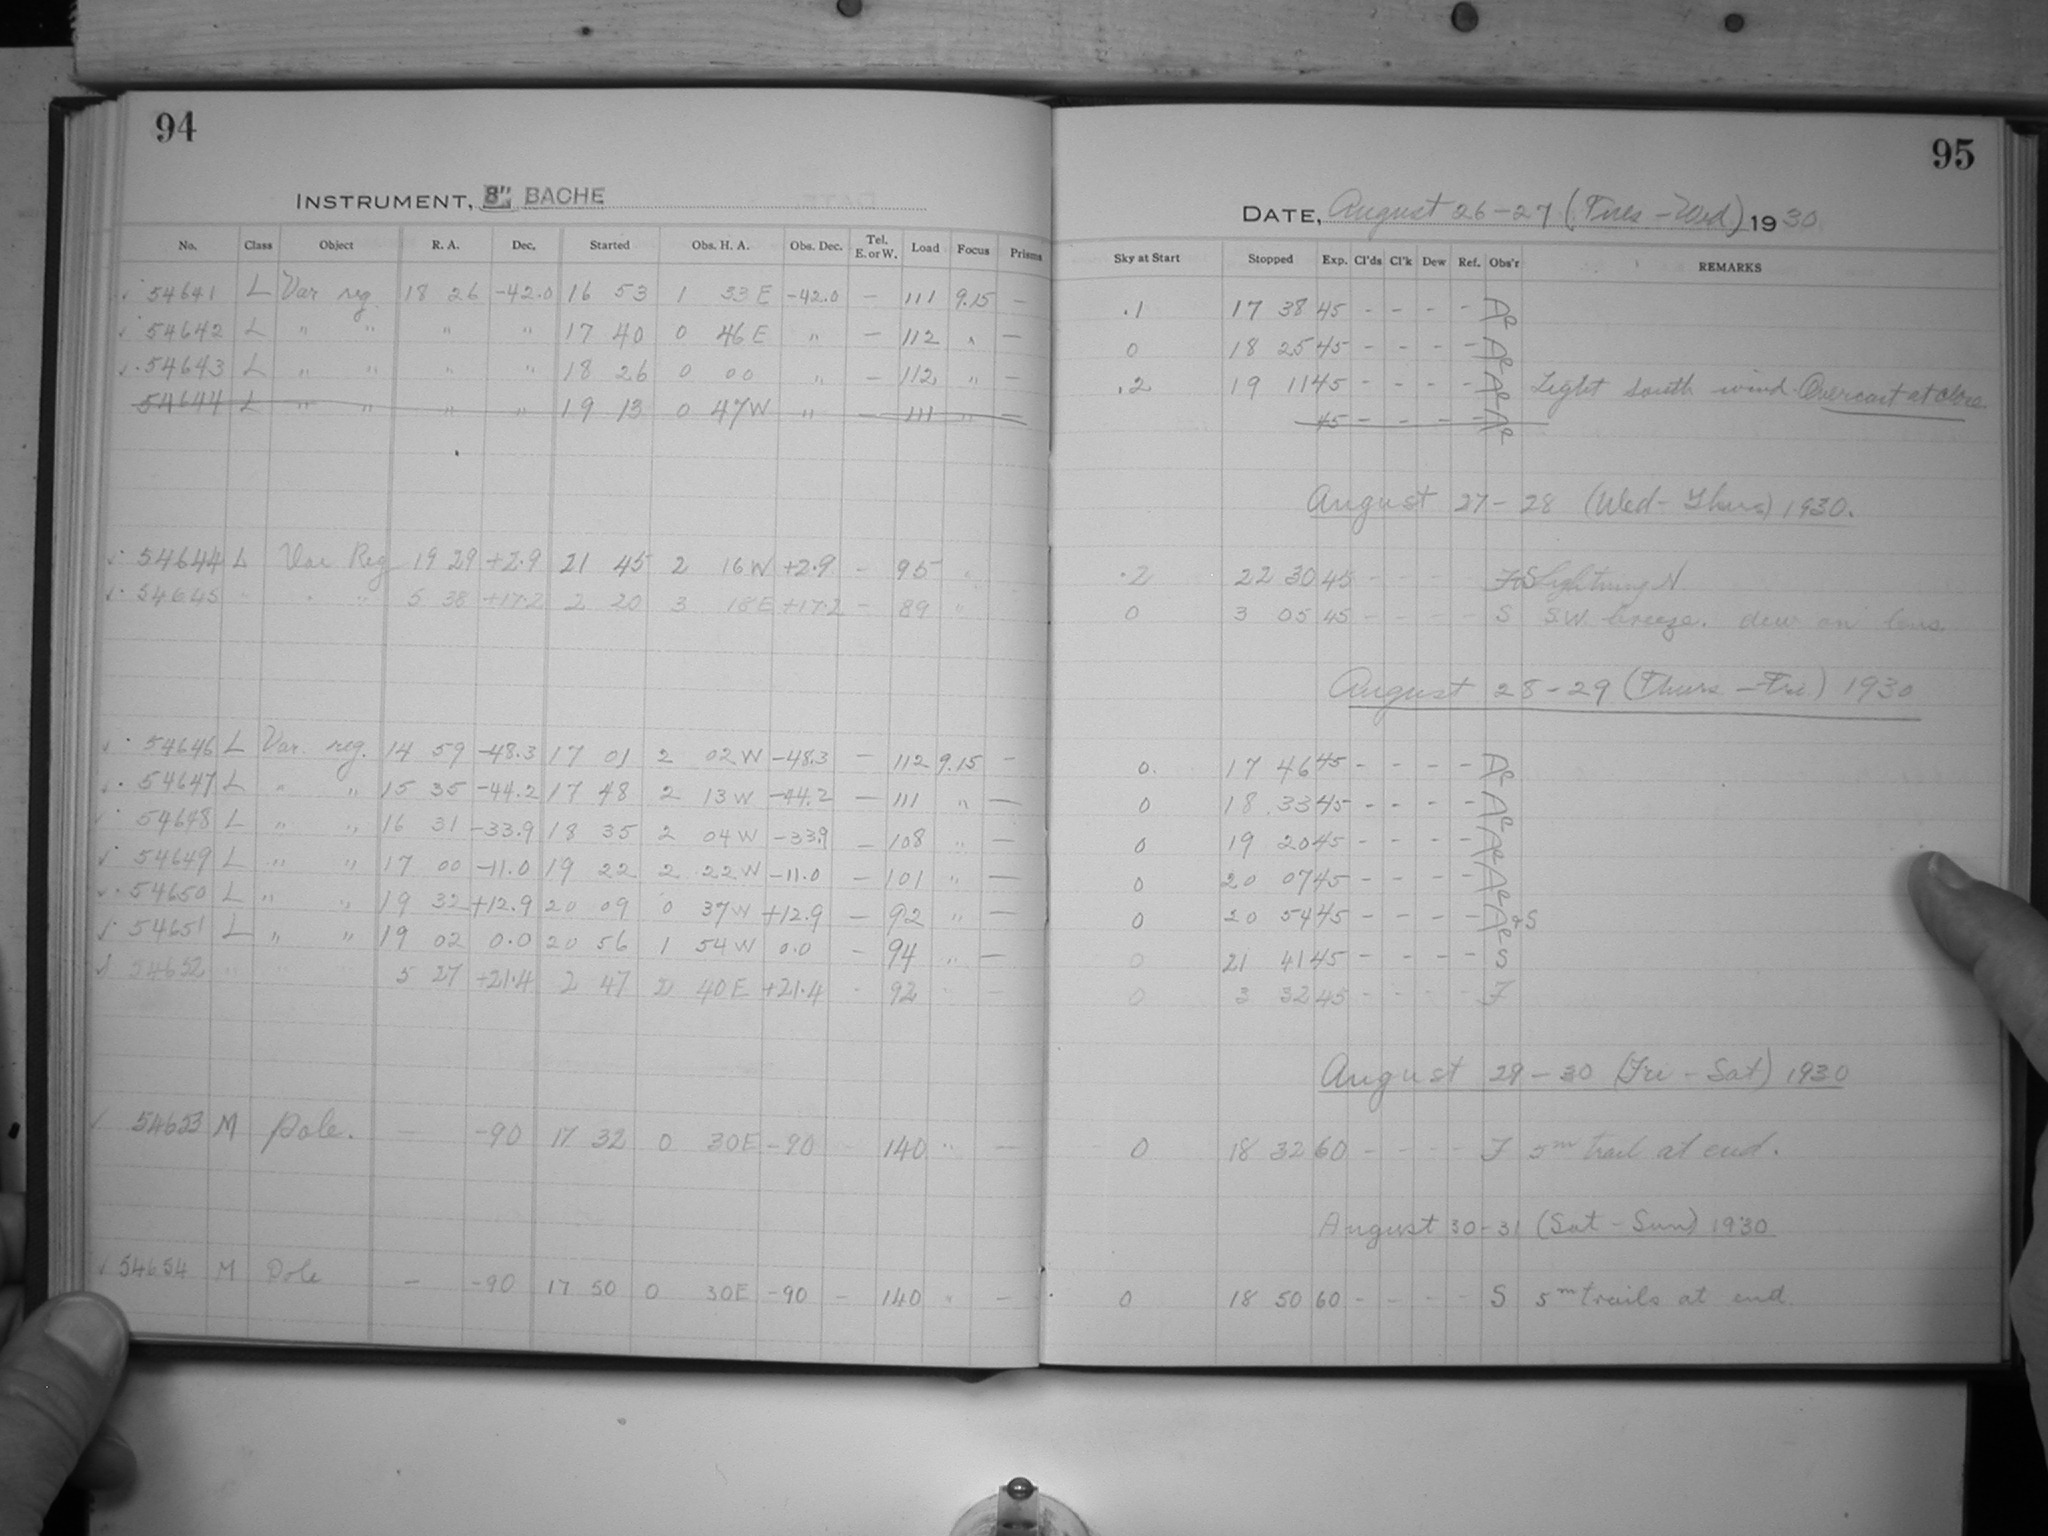 94
INSTRUMENT, 8" BACHE
No. Class Object R. A. Dec. Started Obs. H. A. Obs. Dec. Tel. E. or W. Load Focus Prisms
54641 L Var reg. 18 26 -42.0 16 53 1 33 E -42.0 - 111 9.15 -
54642 L " " " " 17 40 0 46 E " - 112 " -
54643 L " " " " 18 26 0 00 " - 112 " -
54644 L " " " " 19 13 0 47 W " - 111 " -
54644 L Var Reg 19 29 +2.9 21 45 2 16 W +2.9 - 95 "
54645 " " " 5 38 +17.2 2 20 3 18 E +17.2 - 89 "
54646 L Var. reg. 14 59 -48.3 17 01 2 02 W -48.3 - 112 9.15 -
54647 L " " 15 35 -44.2 17 48 2 13 W -44.2 - 111 " -
54648 L " " 16 31 -33.9 18 35 2 04 W -33.9 - 108 " -
54649 L " " 17 00 -11.0 19 22 2 22 W -11.0 - 101 " -
54650 L " " 19 32 +12.9 20 09 0 37 W +12.9 - 92 " -
54651 L " " 19 02 0.0 20 56 1 54 W 0.0 - 94 " -
54652 " " " 5 27 +21.4 2 47 2 40 E +21.4 - 92 " -
54653 M Pole. - -90 17 32 0 30 E -90 - 140 " -
54654 M Pole - -90 17 50 0 30 E -90 - 140 " -
95
DATE, August 26-27 (Tues-Wed) 1930
Sky at Start Stopped Exp. Cl'ds Cl'k Dew Ref. Obs'r REMARKS
.1 17 38 45 - - - -
0 18 25 45 - - - -
.2 19 11 45 - - - - Light south wind. Overcast at close.
45 - - - -
August 27-28 (Wed-Thurs) 1930.
.2 22 30 45 - - - Lightning N
0 3 05 45 - - - - S SW breeze. dew on lens.
August 28-29 (Thurs-Fri) 1930
0. 17 46 45 - - - -
0 18 33 45 - - - -
0 19 20 45 - - - -
0 20 07 45 - - - -
0 20 54 45 - - - - & S
0 21 41 45 - - - - S
0 3 32 45 - - - - F
August 29-30 (Fri-Sat) 1930
0 18 32 60 - - - - F 5m trail at end.
August 30-31 (Sat-Sun) 1930
0 18 50 60 - - - - S 5m trails at end.